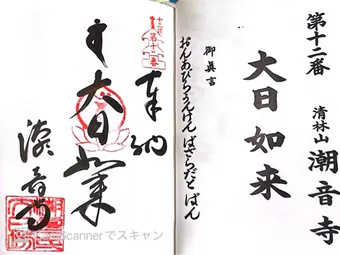 第十二番
清林山 潮音寺
大日如来
御真言
おんあびらうんけん ばざらだと ばん
奉納
大日如来
潮音寺
Scannerでスキャン